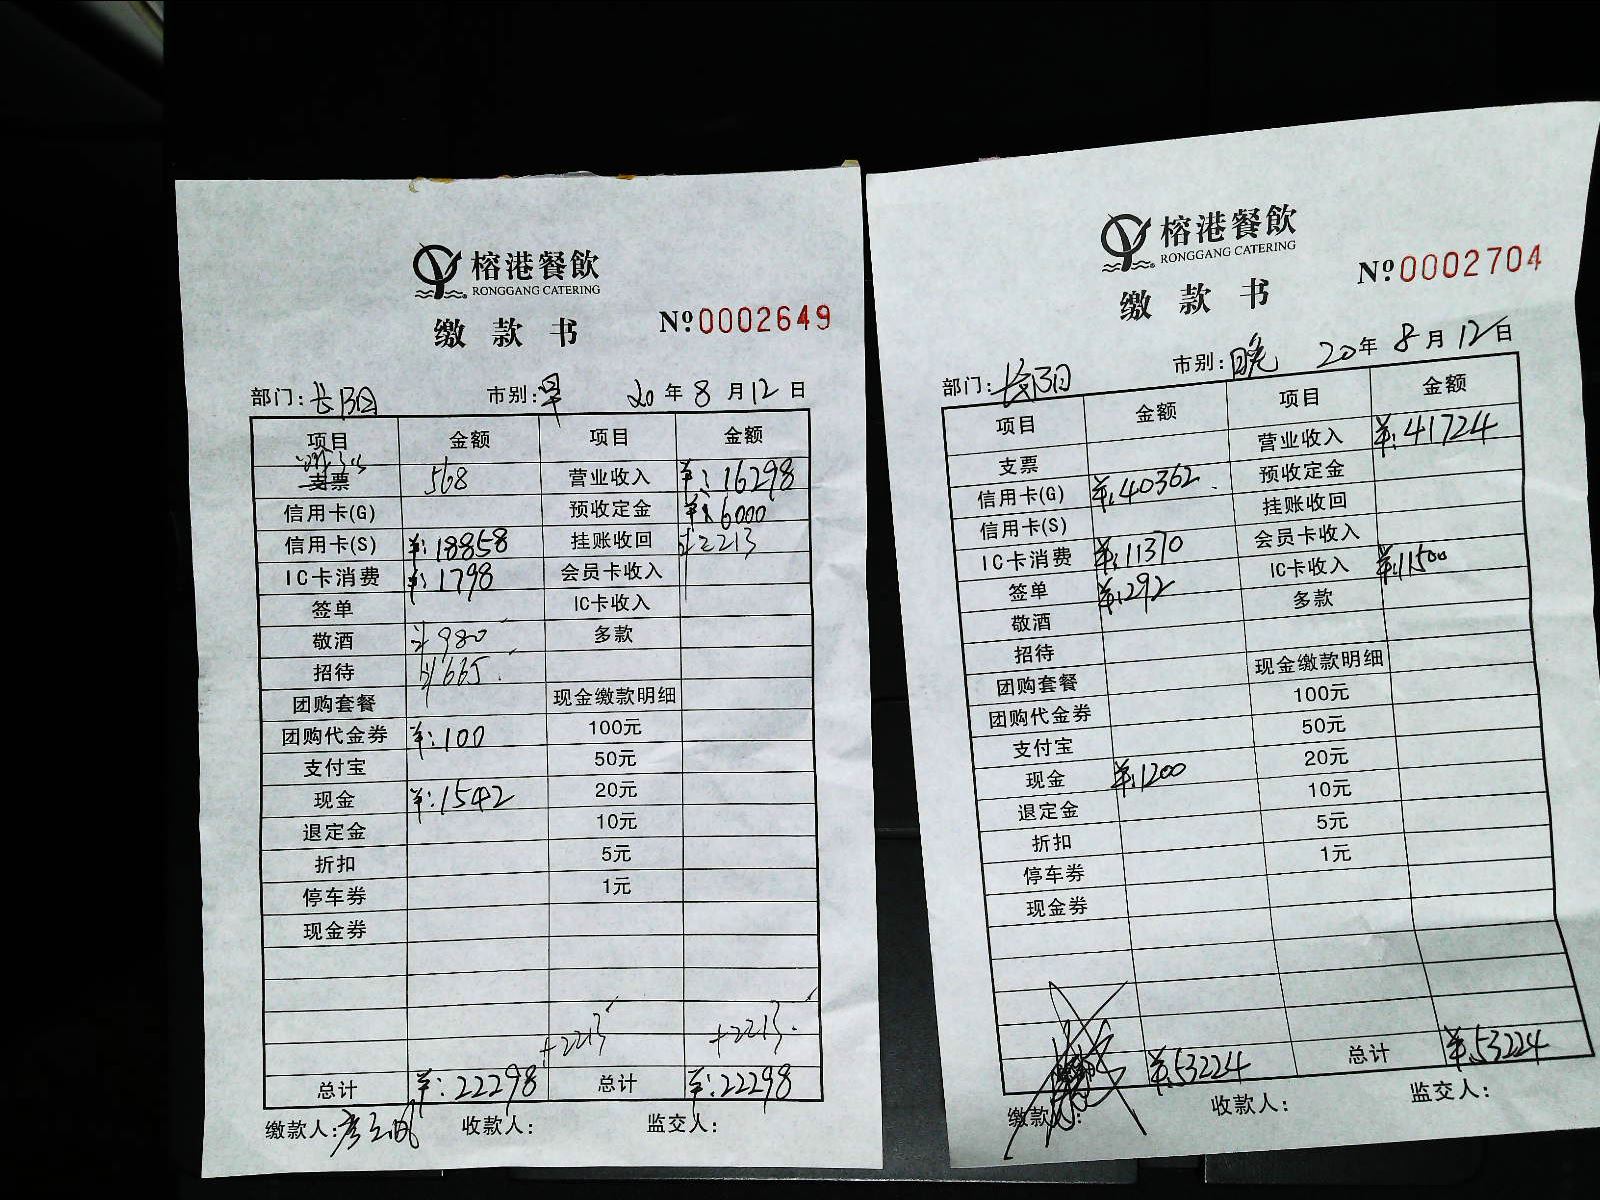 榕港餐飲
RONGGANG CATERING
缴款书 Nº0002649
部门: 市别:早 20年8月12日
项目 金额 项目 金额
支票 568 营业收入 ¥:16298
信用卡(G) 预收定金 ¥:6000
信用卡(S) ¥:18858 挂账收回 +2213
IC卡消费 ¥:1798 会员卡收入
签单 IC卡收入
敬酒 980 多款
招待 665
团购套餐 现金缴款明细
团购代金券 ¥:100 100元
支付宝 50元
现金 ¥:1542 20元
退定金 10元
折扣 5元
停车券 1元
现金券
+2213 +2213
总计 ¥:22298 总计 ¥:22298
缴款人: 收款人: 监交人:
榕港餐飲
RONGGANG CATERING
缴款书 Nº0002704
部门: 市别:晚 20年8月12日
项目 金额 项目 金额
支票 营业收入 ¥:41724
信用卡(G) ¥:40362 预收定金
信用卡(S) 挂账收回
IC卡消费 ¥:11370 会员卡收入
签单 ¥:292 IC卡收入 ¥:11500
敬酒 多款
招待
团购套餐 现金缴款明细
团购代金券 100元
支付宝 50元
现金 ¥:1200 20元
退定金 10元
折扣 5元
停车券 1元
现金券
¥:53224 总计 ¥:53224
缴款人: 收款人: 监交人: